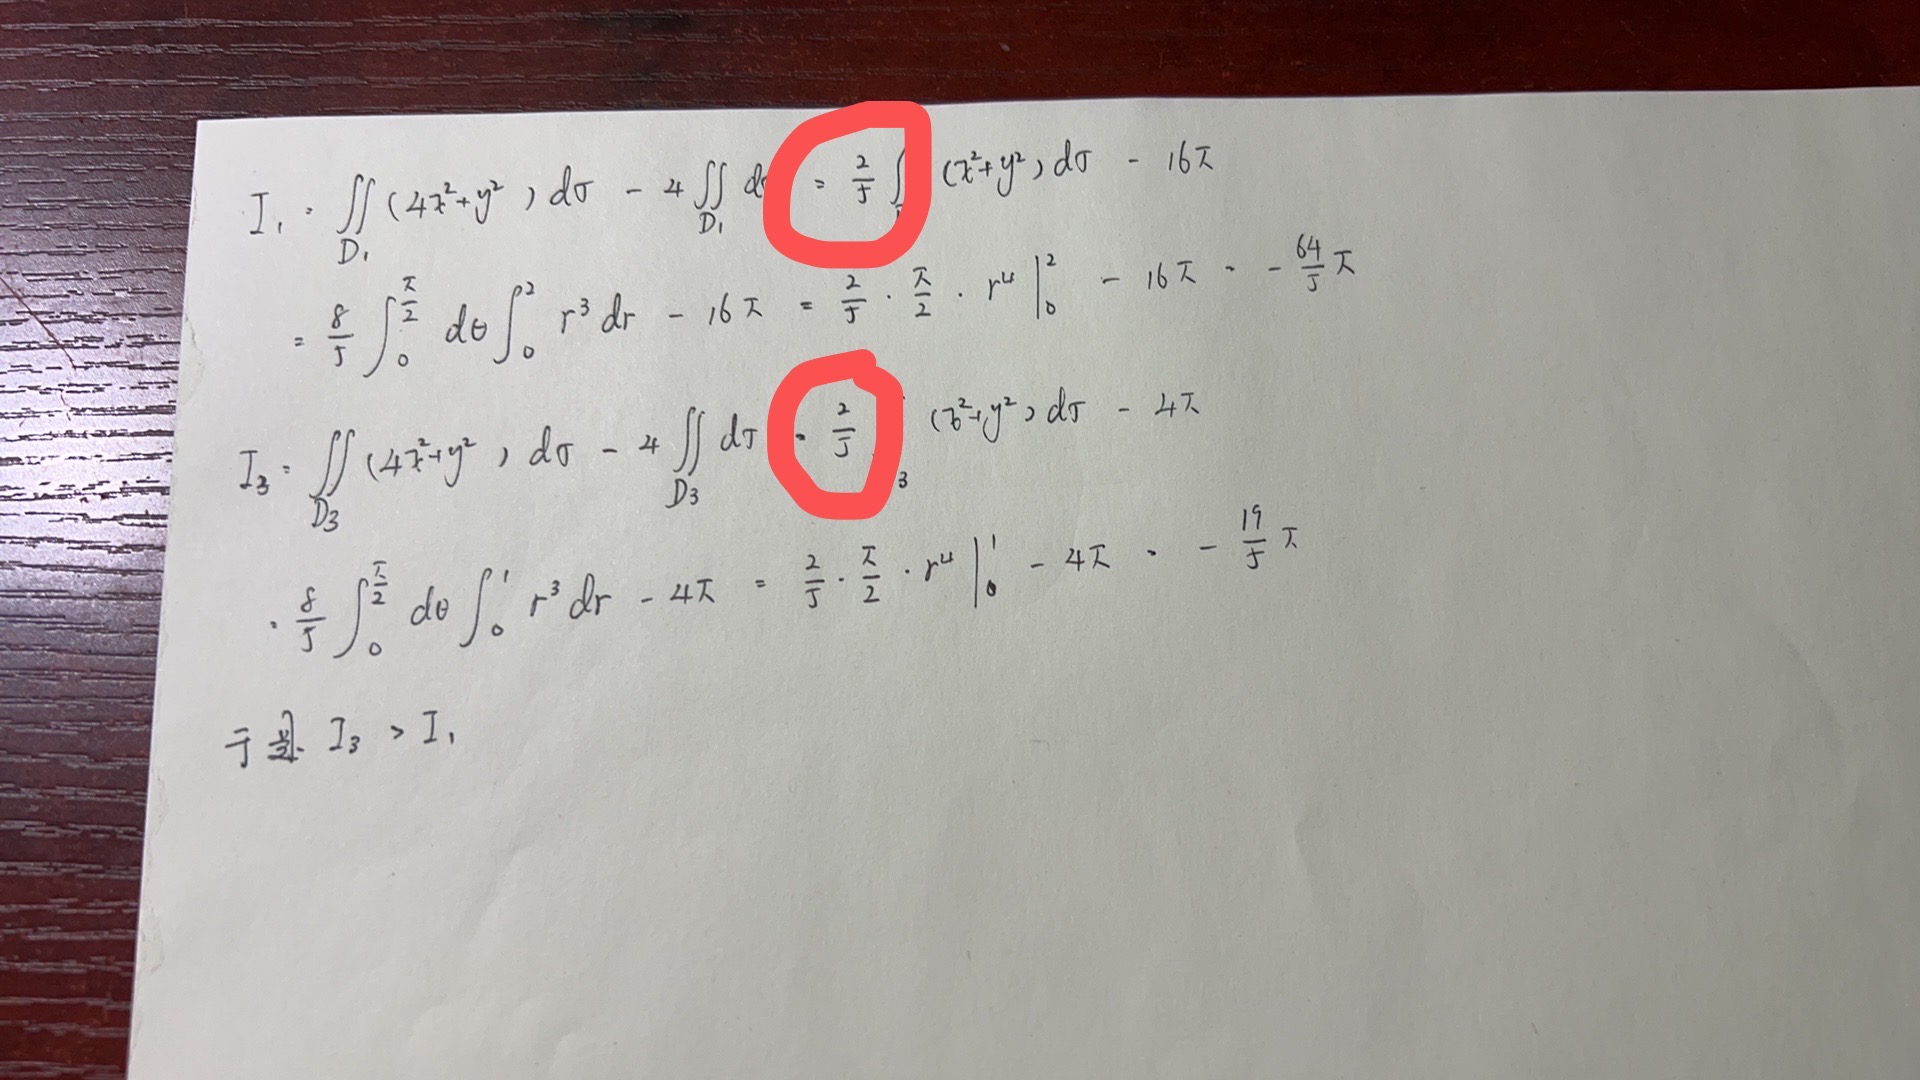 I₁ = ∬_{D₁} (4x²+y²) dσ - 4 ∬_{D₁} dσ = 2/5 ∫ (x²+y²) dσ - 16π
= 8/5 ∫₀^{π/2} dθ ∫₀² r³ dr - 16π = 2/5 · π/2 · r⁴ |₀² - 16π = - 64/5 π
I₃ = ∬_{D₃} (4x²+y²) dσ - 4 ∬_{D₃} dσ = 2/5 ₃ (x²+y²) dσ - 4π
= 8/5 ∫₀^{π/2} dθ ∫₀¹ r³ dr - 4π = 2/5 · π/2 · r⁴ |₀¹ - 4π = - 19/5 π
于是 I₃ > I₁